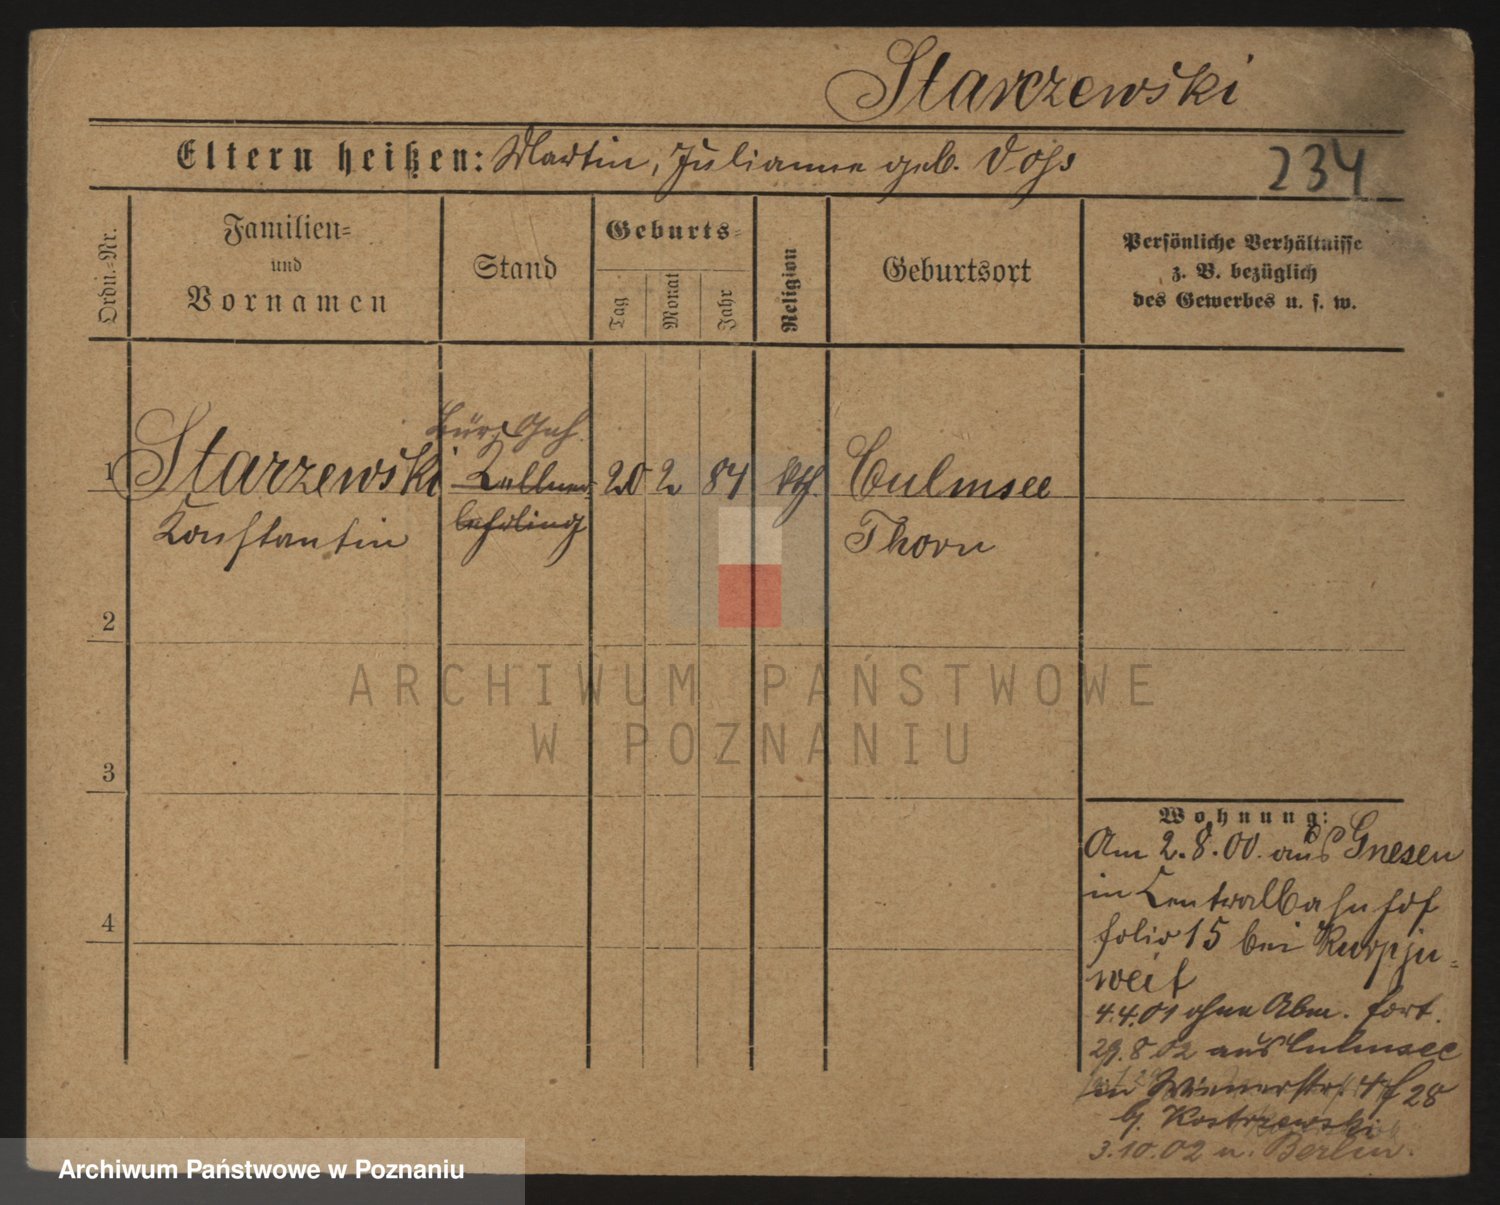 Starczewski
Eltern heißen: Martin, Julianne geb. Voss
234
Ordn.-Nr.
Familien-
und
Vornamen
Stand
Geburts-
Tag
Monat
Jahr
Religion
Geburtsort
Persönliche Verhältnisse
z. B. bezüglich
des Gewerbes u. s. w.
Büro Geh.
1 Starzewski Kellner- 20 2 84 kth. Culmsee
Konstantin lehrling Thorn
2
ARCHIWUM PAŃSTWOWE
W POZNANIU
3
4
Wohnung:
Am 2.8.00. aus Gnesen
in Centralbahnhof
folio 15 bei Kurpju-
weit
4.4.01 ohne Abm. fort.
29.8.02 aus Culmsee
in 4 f 28
b. Kostrzewski
3.10.02 n. Berlin.
Archiwum Państwowe w Poznaniu